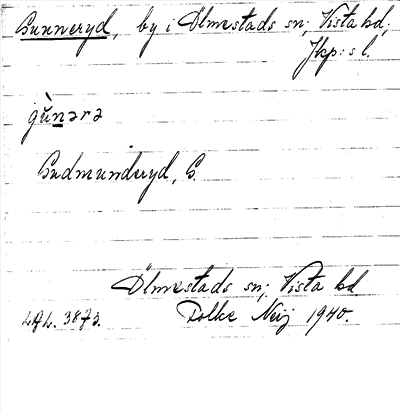 Gunneryd, by i Ölmestads sn; Vista hd;
Jkp:s l.
gùnərə
Gudmunderyd, G.
Ölmestads sn; Vista hd
L.A.L. 3873. Folke Neij 1940.